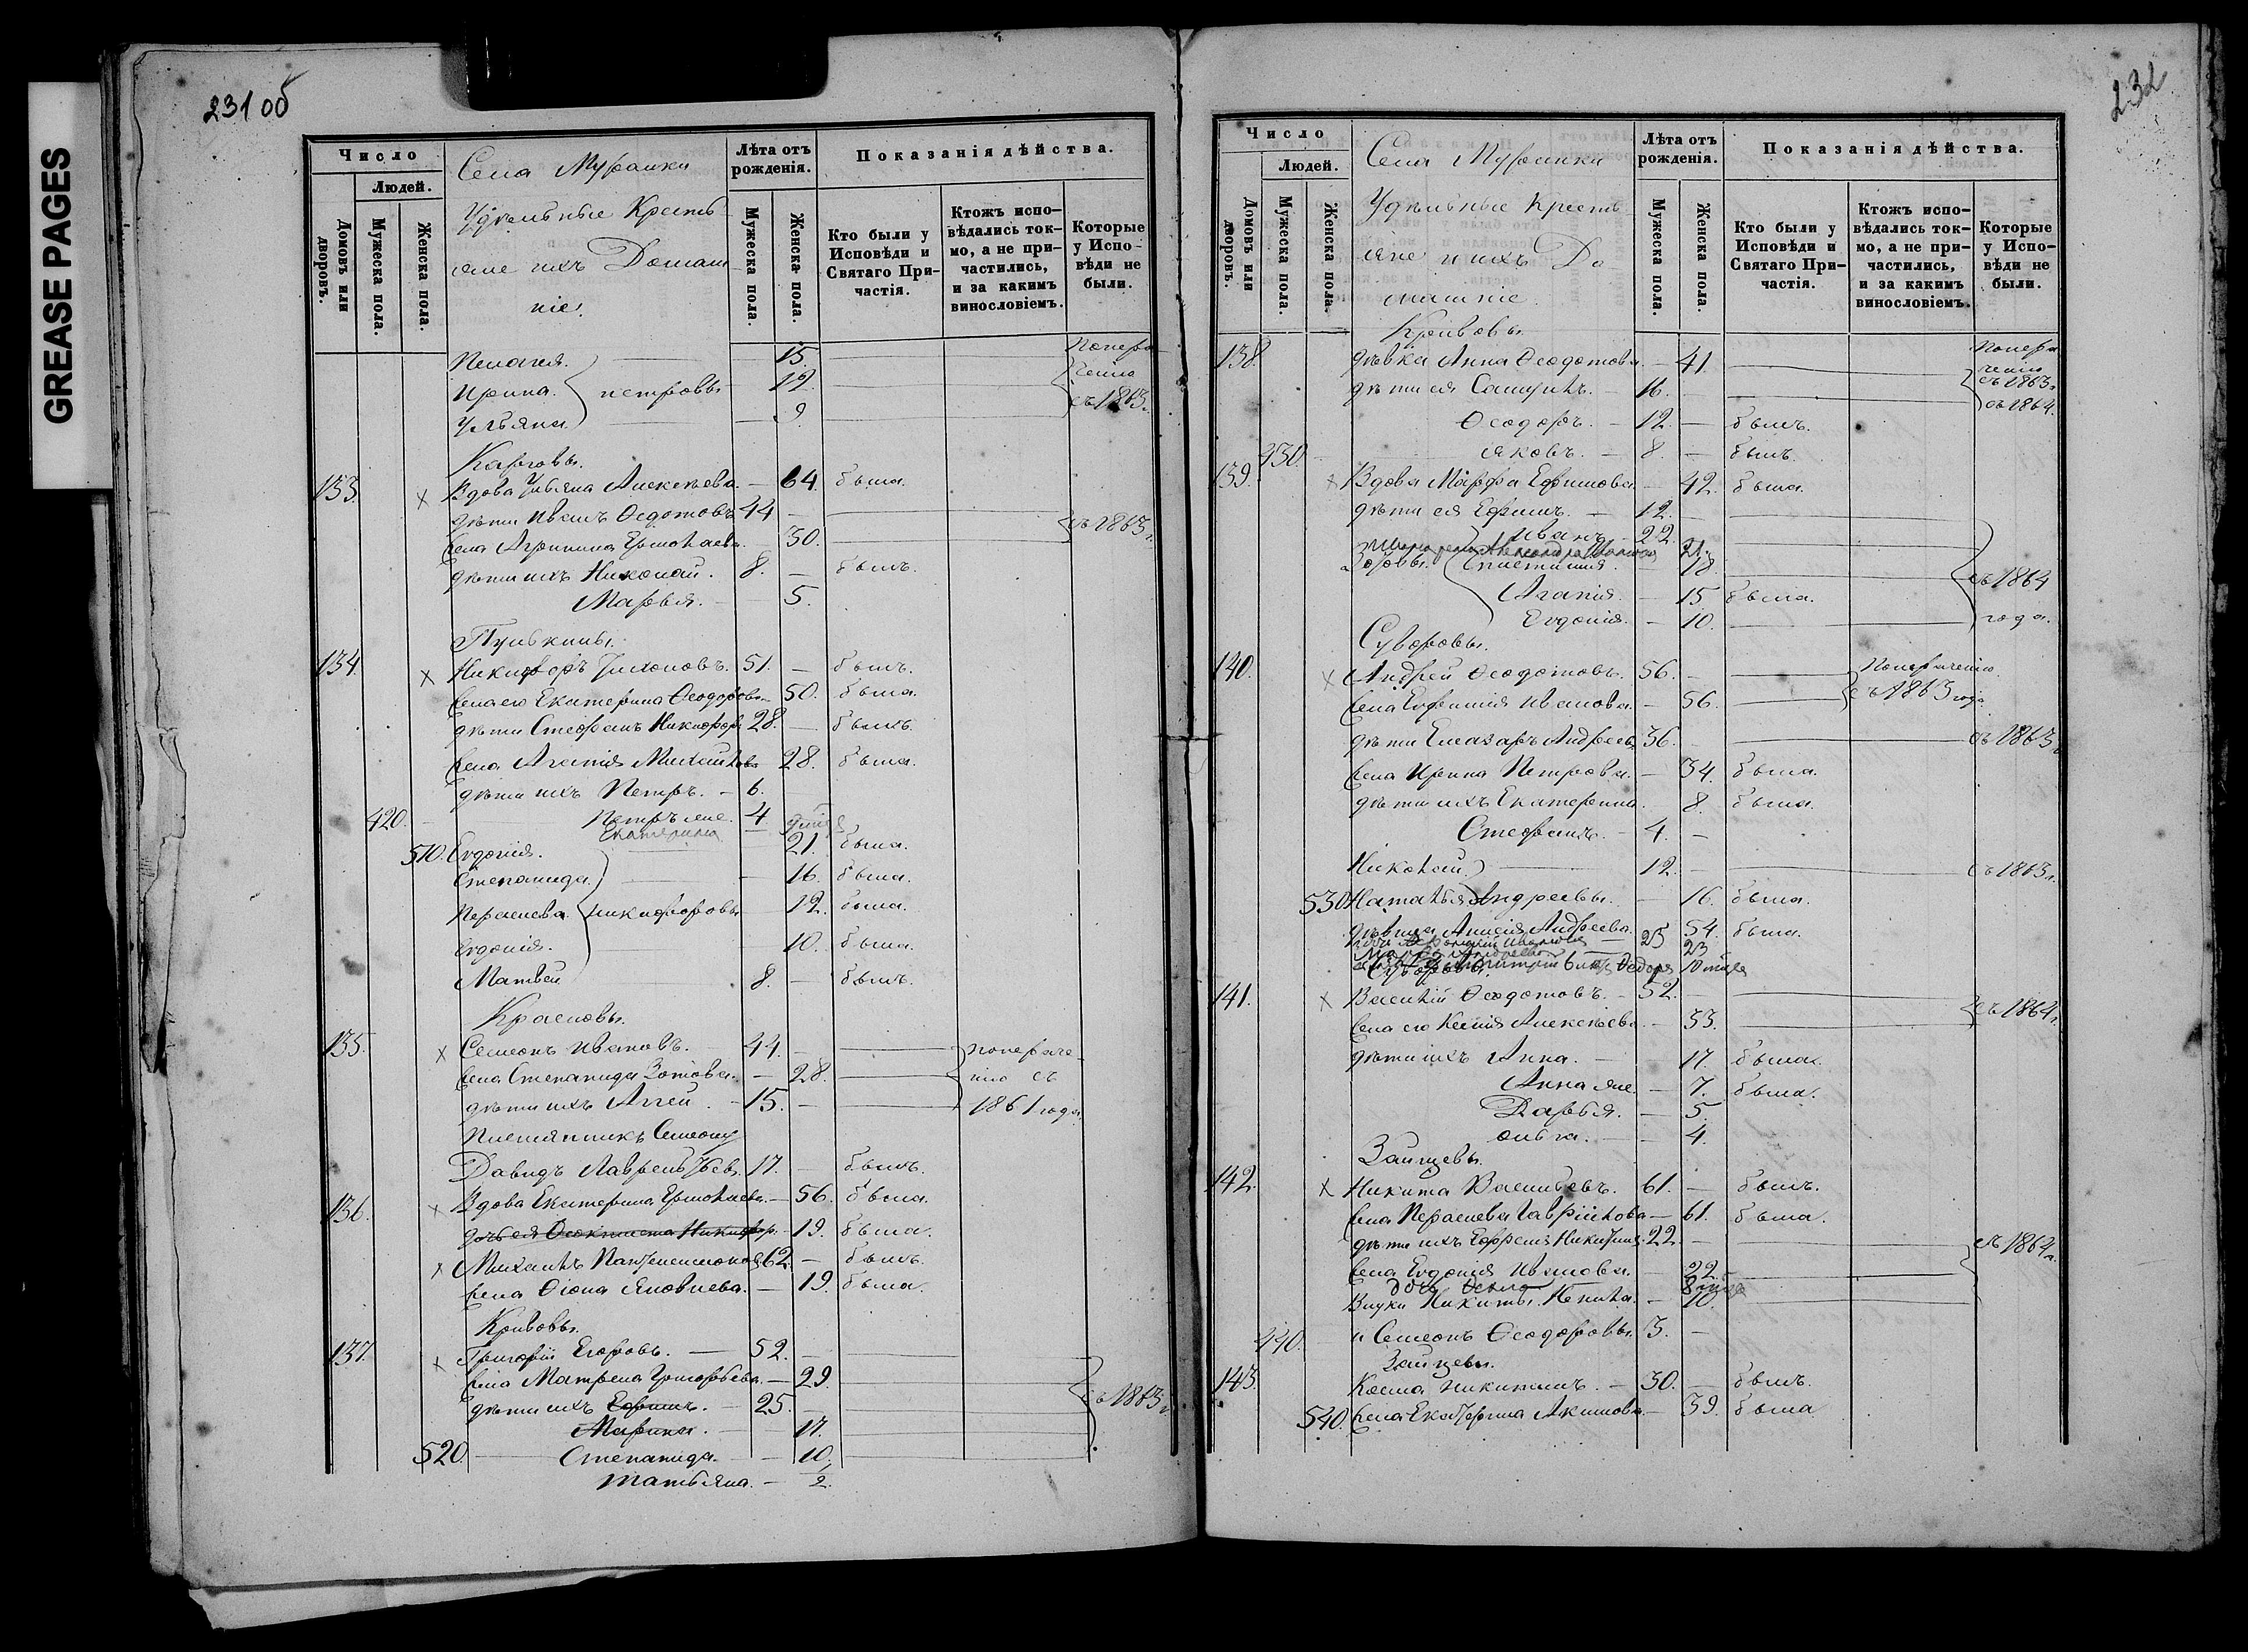 GREASE PAGES
231 об
Число
Людей.
Домовъ или дворовъ.
Мужеска пола.
Женска пола.
Села Муранки
Удѣльные Кресть
яне ихъ Домаш
ніе.
Лѣта отъ рожденія.
Мужеска пола.
Женска пола.
Показанія дѣйства.
Кто были у Исповѣди и Святаго Причастія.
Ктожъ исповѣдались токмо, а не причастились, и за какимъ винословіемъ.
Которые у Исповѣди не были.
Пелагея. 15.
Ирина. петровы 12.
Ульяна 9. съ 1863 г.
133. Вдова Ульяна Алексѣева. — 64. была.
дѣти Иванъ Ѳедотовъ 44 —
жена Агрипина Ермолаева. 30. съ 1863 г.
дѣти ихъ Николай. 8. — былъ.
Марья. — 5.
Пулькины.
134. Никифоръ Тихоновъ. 51. — былъ.
жена его Екатерина Ѳеодорова 50. была.
дѣти Стефанъ Никифор. 28. — былъ.
жена Агапія Михайлова 28. была.
дѣти ихъ Петръ. — 6.
420. Петръ же. 4.
Екатерина
510. Евдокія. 21. была.
Степанида. — 16. была.
Параскева. никифоровы 12. была.
Евдокія. 10. была.
Матвей 8. — былъ.
Красновы.
135. Семеонъ Ивановъ. 44. —
жена Степанида Зотова. — 28.
дѣти ихъ Аггей. — 15. — 1861 года
Племянникъ Семеону
Давидъ Лаврентьев. 17. — былъ.
136. Вдова Екатерина Ермолаева. — 56. была.
дочь ея Ѳеоктиста Никифор. — 19. была.
Михаилъ Пантелеимонов. 62. — былъ.
жена — 19. была
Кривовы.
137. Григорій Егоровъ. — 52. —
жена Матрена Григорьева. — 29.
дѣти ихъ Ефимъ. — 25. — съ 1863 г.
Марина. — 17.
520. Степанида. — 10.
Татьяна. — 2.
232
Число
Людей.
Домовъ или дворовъ.
Мужеска пола.
Женска пола.
Села Муранки
Удѣльные Кресть
яне и ихъ До
машніе.
Лѣта отъ рожденія.
Мужеска пола.
Женска пола.
Показанія дѣйства.
Кто были у Исповѣди и Святаго Причастія.
Ктожъ исповѣдались токмо, а не причастились, и за какимъ винословіемъ.
Которые у Исповѣди не были.
Кривовы.
138. дѣвка Анна Ѳеодотова. — 41.
дѣти ея Самуилъ. — 16. съ 1863 г.
съ 1864.
Ѳеодоръ. — 12. — былъ.
430. Яковъ. — 8. — былъ.
139. Вдова Марфа Ефимова. 42. была.
дѣти ея Ефимъ. — 12.
Иванъ — 22.
Епистимія. — 18. съ 1864
Агапія. — 15. была.
Евдокія. — 10. года.
Суворовы.
140. Андрей Ѳеодотовъ. 56. —
жена Евфимія Иванова. — 56. съ 1863 года
дѣти Елеазаръ Андреев. 36. — съ 1863
жена Ирина Петрова. — 34. была.
дѣти ихъ Екатерина. 8. была.
Стефанъ. — 4. —
Николай 12. — съ 1863 г.
530. Наталья Андреевы. — 16. была.
дѣвица Анисія Андреева. 54. была.
25 23
Суворовы.
141. Василій Ѳеодотовъ. — 52. —
жена его Ксенія Алексѣева — 53. съ 1864 г.
дѣти ихъ Анна. — 17. была.
Анна же — 7. была.
Дарья. — 5.
Ольга. — 4.
Зайцевы.
142. Никита Васильевъ. 61. — былъ.
жена Параскева Гаврилова — 61. была.
дѣти ихъ Ефремъ Никитин. 22. — съ 1864 г.
жена Евдокія Иванова. — 22.
дочь
Внуки Никиты. — 10.
440. и Семеонъ Ѳеодоровы. 3. —
Зайцевы.
143. Косма Никитинъ. — 30. — былъ.
540. жена Екатерина Акимова — 39. была